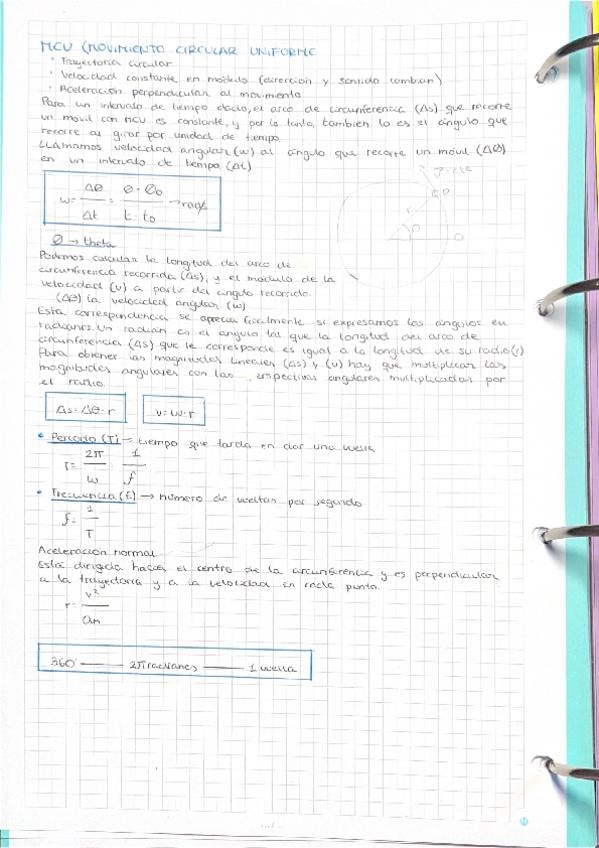 MCU (MOVIMIENTO CIRCULAR UNIFORME
· Trayectoria circular
· Velocidad constante en módulo (dirección y sentido cambian)
· Aceleración perpendicular al movimiento
Para un intervalo de tiempo dado, el arco de circunferencia (Δs) que recorre
un móvil con MCU es constante, y por lo tanto, también lo es el ángulo que
recorre al girar por unidad de tiempo.
LLamamos velocidad angular (w) al ángulo que recorre un móvil (ΔΘ)
en un intervalo de tiempo (Δt)
w = ΔΘ / Δt = Θ - Θ0 / t - t0 → rad/s
Θ → theta
Podemos calcular la longitud del arco de
circunferencia recorrida (Δs), y el módulo de la
velocidad (v) a partir del ángulo recorrido.
(ΔΘ) la velocidad angular (w)
Esta correspondencia se aprecia facilmente si expresamos los ángulos en
radianes. Un radián es el angulo tal que la longitud del arco de
circunferencia (Δs) que le corresponde es igual a la longitud de su radio (r)
Para obtener las magnitudes lineales (Δs) y (v) hay que multiplicar las
magnitudes angulares con las respectivas angulares multiplicadas por
el radio.
Δs = ΔΘ · r v = w · r
• Periodo (T) → tiempo que tarda en dar una vuelta
T = 2π / w 1 / f
• Frecuencia (f) → número de vueltas por segundo
f = 1 / T
Aceleración normal
Está dirigida hacia el centro de la circunferencia y es perpendicular
a la trayectoria y a la velocidad en cada punto.
r = v² / an
360° —— 2π radianes —— 1 vuelta